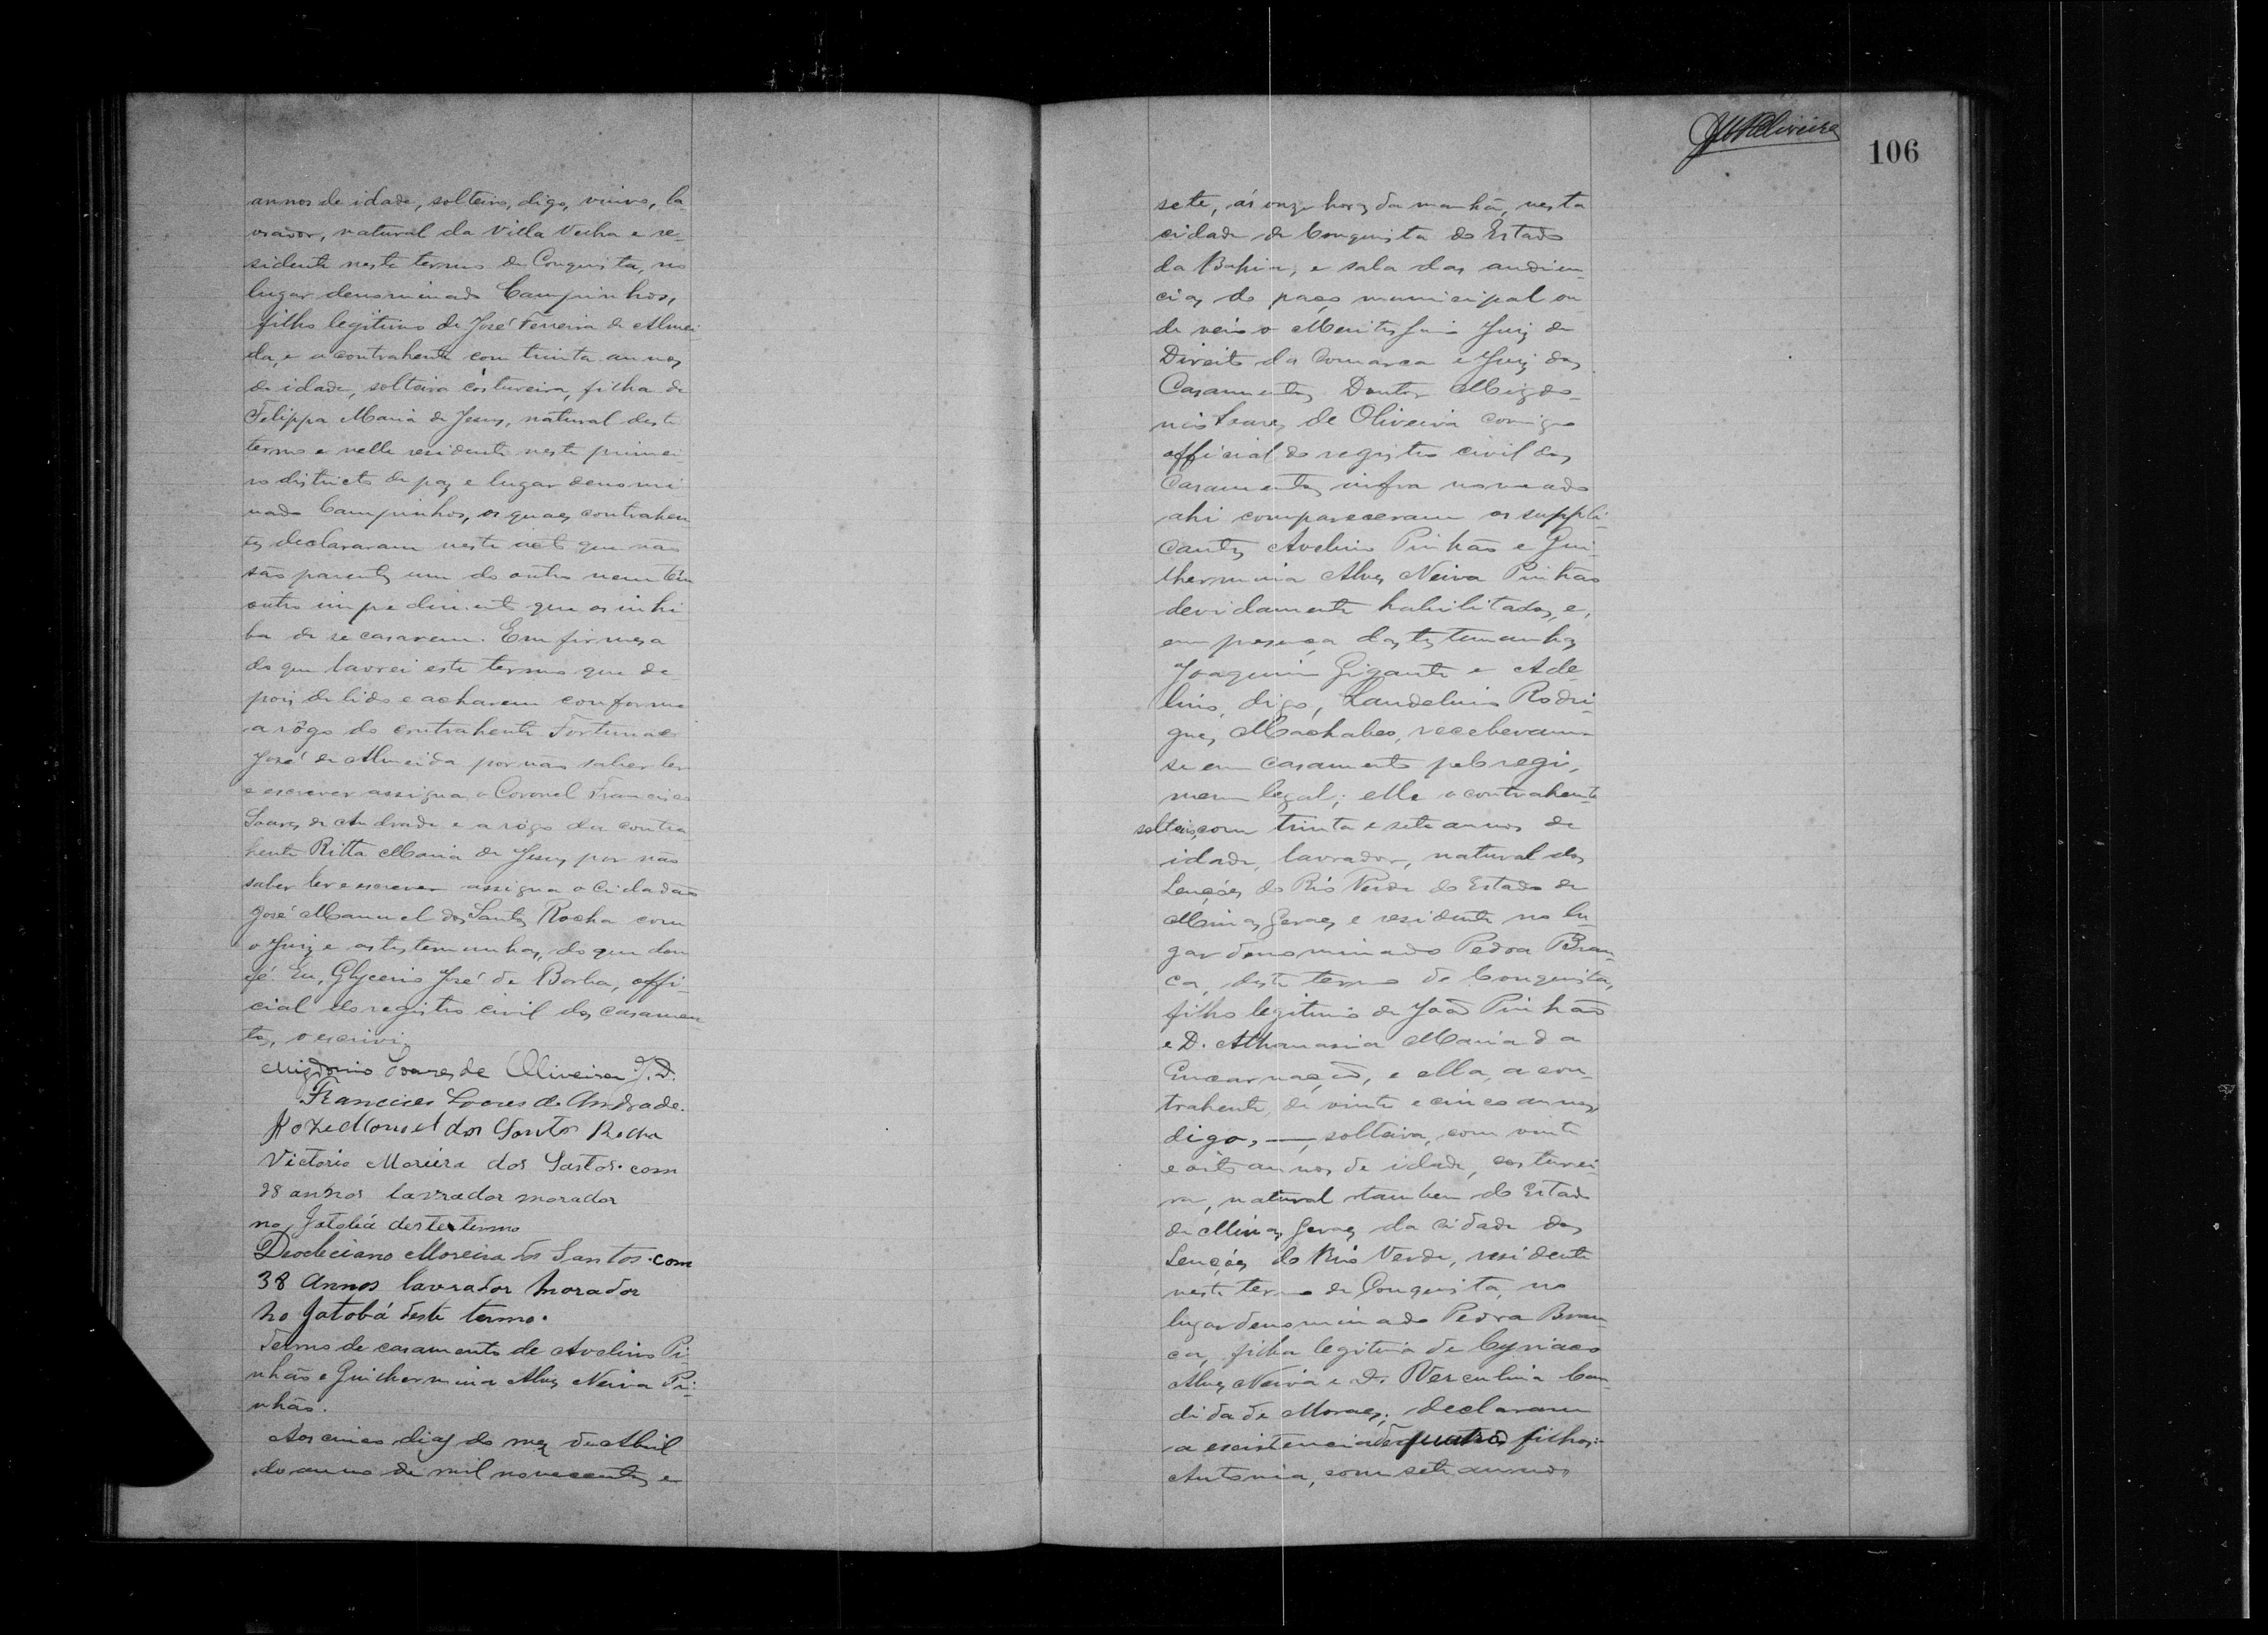 annos de idade, solteiro, digo, viuvo, la-
vrador, natural da Villa Velha e re-
sidente neste termo de Conquista, no
lugar denominado Campinhos,
filho legitimo de José Ferreira de Almei-
da, e a contrahente com trinta annos
de idade, solteira costureira, filha de
Filippa Maria de Jesus, natural deste
termo e nelle residente neste primei-
ro districto de paz e lugar denomi-
nado Campinhos, os quaes contrahen-
tes declararam neste acto que não
são parentes um do outro nem têm
outro impedimento que os inhi-
ba de se casarem. Em firmesa
do que lavrei este termo que de-
pois de lido e acharem conforme
a rôgo do contrahente Fortunato
José de Almeida por não saber ler
e escrever assigna o Coronel Francisco
Soares de Andrade e a rôgo da contra-
hente Ritta Maria de Jesus por não
saber ler e escrever assigna o Cidadão
José Manuel dos Santos Rocha com
o Juiz e as testemunhas, do que dou
fé. Eu, Glycerio José de Borba, offi-
cial do registro civil dos casamen-
tos, o escrivi.
Migdonio Soares de Oliveira J. D.
Francisco Soares de Andrade.
Joze Manoel dos Santos Rocha
Victorio Moreira dos Santos. com
28 annos lavrador morador
no Jatobá deste termo
Deocleciano Moreira dos Santos. com
38 Annos lavrador morador
no Jatobá deste termo.
Termo de casamento de Avelino Pi-
nhão e Guilhermina Alves Neiva Pi-
nhão.
Aos cinco dias do mez de Abril
do anno de mil novecentos e
106
sete, ás onze horas da manhã, nesta
cidade de Conquista do Estado
da Bahia, e sala das audien-
cias do paço municipal on-
de veio o Meritissimo Juiz de
Direito da Comarca e Juiz dos
Casamentos Doutor Migdo-
nio Soares de Oliveira comigo
official do registro civil dos
Casamentos infra nomeado
ahi compareceram os suppli-
cantes Avelino Pinhão e Gui-
lhermina Alves Neiva Pinhão
devidamente habilitados, e,
em presença das testemunhas
Joaquim Gigante e Ade-
lino, digo, Laudelino Rodri-
gues Machabeo, receberam-
se em casamento pelo regi-
mem legal; elle o contrahente
solteiro, com trinta e sete annos de
idade, lavrador, natural dos
Lençóes do Rio Verde do Estado de
Minas Geraes e residente no lu-
gar denominado Pedra Bran-
ca, deste termo de Conquista,
filho legitimo de João Pinhão
e D. Athanasia Maria da
Encarnação, e ella, a con-
trahente, de vinte e cinco annos
digo, —, solteira, com vinte
e oito annos de idade, costurei-
ra, natural tambem do Estado
de Minas Geraes da cidade dos
Lençóes do Rio Verde, residente
neste termo de Conquista, no
lugar denominado Pedra Bran-
ca, filha legitima de Cyriaco
Alves Neiva e D. Herculina Can-
dida de Moraes; declararam
a existencia de quatro filhos:-
Antonia, com sete annos